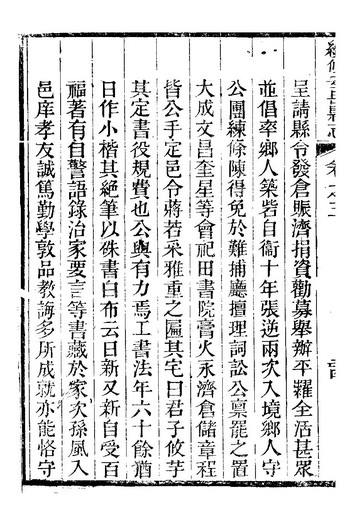 呈請縣令發倉賑濟捐資勸募舉辦平糶全活甚眾
並倡率鄉人築砦自衞十年張逆兩次入境鄉人守
公團練條陳得免於難捕廳擅理詞訟公稟罷之置
大成文昌奎星等會祀田書院膏火永濟倉儲章程
皆公手定邑令蔣若采雅重之匾其宅曰君子攸芋
其定書役規費也公與有力焉工書法年六十餘猶
日作小楷其絕筆以硃書白布云日新又新自受百
福著有自警語錄治家要言等書藏於家次孫風入
邑庠孝友誠篤勤學敦品教誨多所成就亦能恪守